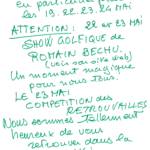 en particulier pour
les 19.22.23.24 MAI
ATTENTION : 22 et 23 MAI
SHOW GOLFIQUE de
ROMAIN BECHU.
(voir son site web)
Un moment magique
pour nous tous.
LE 23 MAI.
COMPETITION des
RETROUVAILLES
Nous sommes tellement
heureux de vous
retrouver dans la